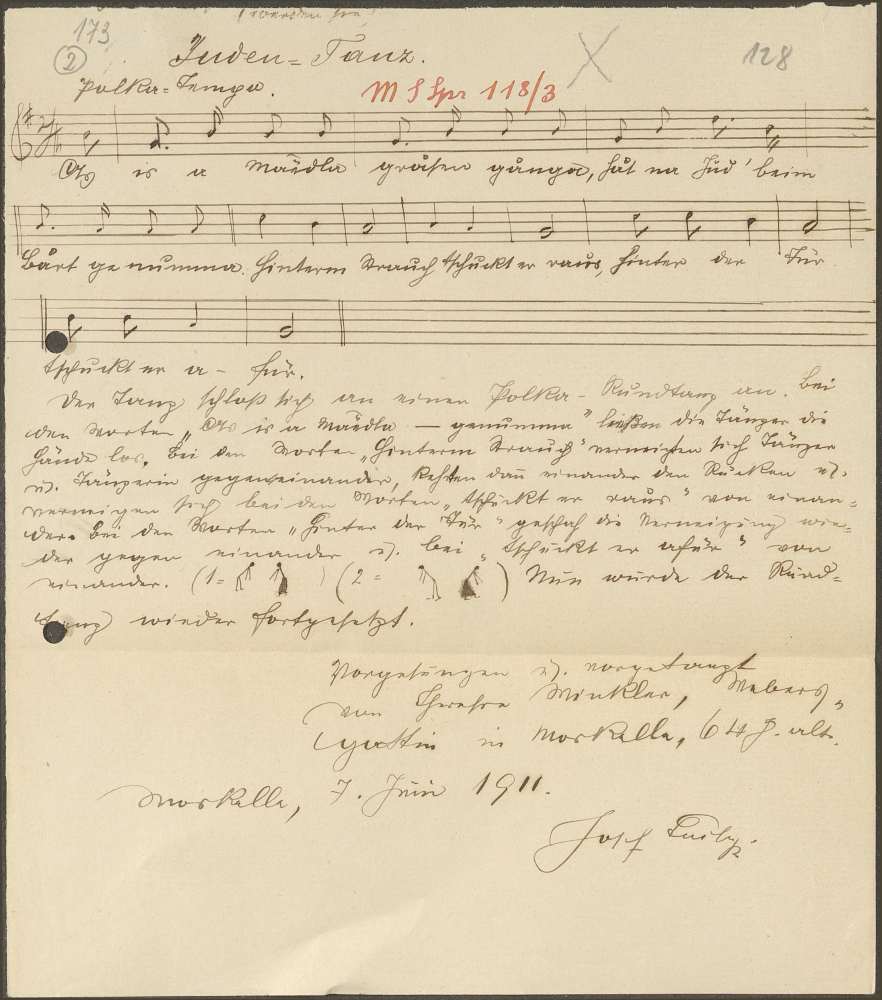 173
2
Juden-Tanz.
128
Polka-Tempo.
M S Spr 118/3
is a Mäedla gråsen gånga, håt na Jud' beim
Bårt genumma. Hinterm Strauch tschuckt er raus, hinter der Tür
tschuckt er a-für.
Der Tanz schloß sich an einen Polka-Rundtanz an. Bei
den Worten „ is a Mäedla — genumma“ ließen die Tänzer die
Hände los. Bei den Worten „Hinterm Strauch“ verneigten sich Tänzer
u. Tänzerin gegeneinander, kehrten dann einander den Rücken u.
verneigen sich bei den Worten „tschuckt er raus“ von einan-
der. Bei den Worten „Hinter der Tür“ geschah die Verneigung wie-
der gegen einander u. bei „tschuckt er afür“ von
einander. (1= ) (2= ) Nun wurde der Rund-
tanz wieder fortgesetzt.
Vorgesungen u. vorgetanzt
von Therese Winkler, Webers-
gattin in Morkelle, 64 J. alt.
Morkelle, 7. Juni 1911.
Josef